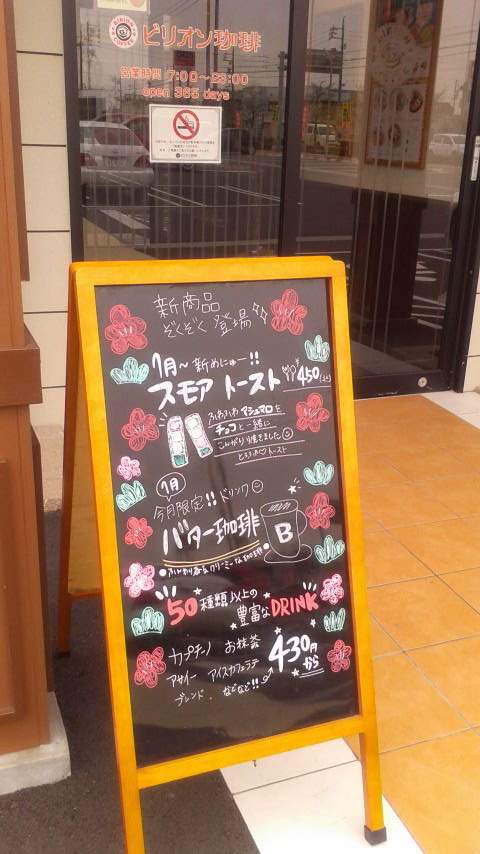 BIRION COFFEE
ビリオン珈琲
営業時間 7:00〜23:00
open 365 days
新商品
ぞくぞく登場
1月〜新めにゅー!!
スモア トースト
¥450
ふわふわマシュマロを
チョコと一緒に
こんがり焼きました
とろける♡トースト
1月
今月限定!!ドリンク
バター珈琲
B
50種類以上の
豊富なDRINK
カプチーノ お抹茶
アサイー アイスカフェラテ
ブレンド などなど!!
430円から